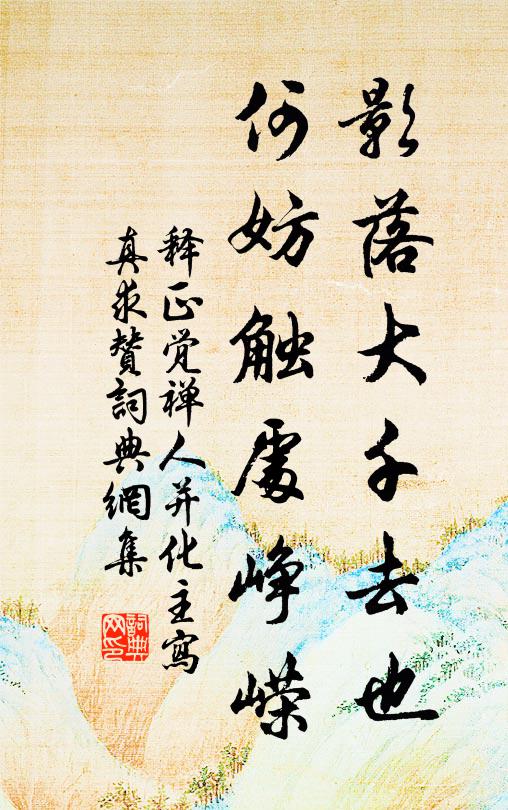 影落大千去也
何妨触處峥嵘
释正觉禅人并化主寫
真求賛詞典網集
詞典網印